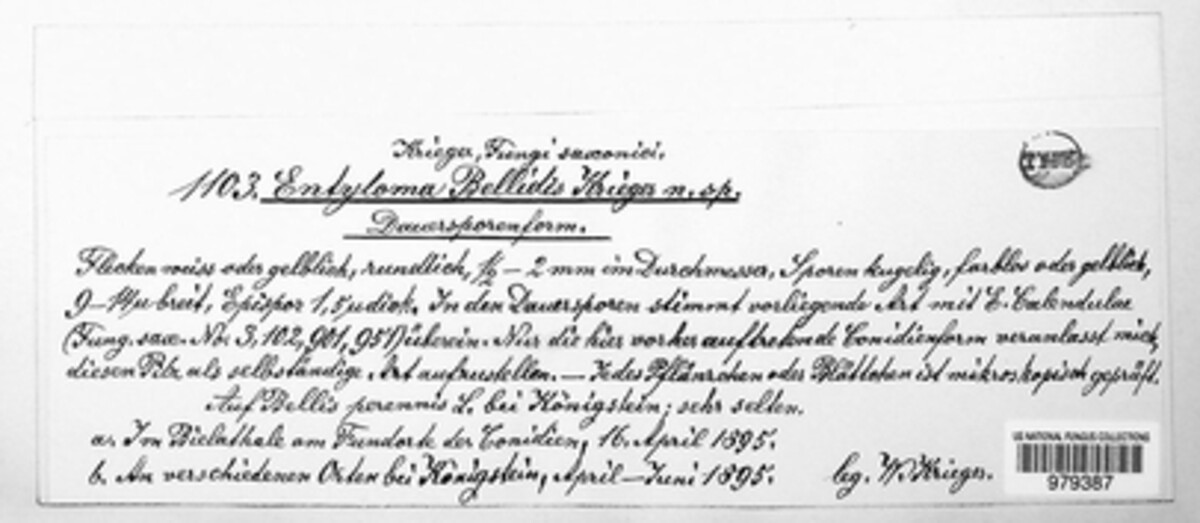 Krieger, Fungi saxonici.
1103. Entyloma Bellidis Krieger n. sp.
Dauersporenform.
Flecken weiss oder gelblich, rundlich, ½ – 2 mm im Durchmesser. Sporen kugelig, farblos oder gelblich,
9–14 µ breit, Epispor 1,5 µ dick. In den Dauersporen stimmt vorliegende Art mit E. Calendulae
(Fung. sax. No. 3, 102, 901, 951) überein. Nur die hier vorher auftretende Conidienform veranlasst mich,
diesen Pilz als selbständige Art aufzustellen. — Jedes Pflänzchen oder Blättchen ist mikroskopisch geprüft.
Auf Bellis perennis L. bei Königstein; sehr selten.
a. Im Bielathale am Fundorte der Conidien, 16. April 1895.
b. An verschiedenen Orten bei Königstein, April–Juni 1895.
leg. W. Krieger.
US NATIONAL FUNGUS COLLECTIONS
979387